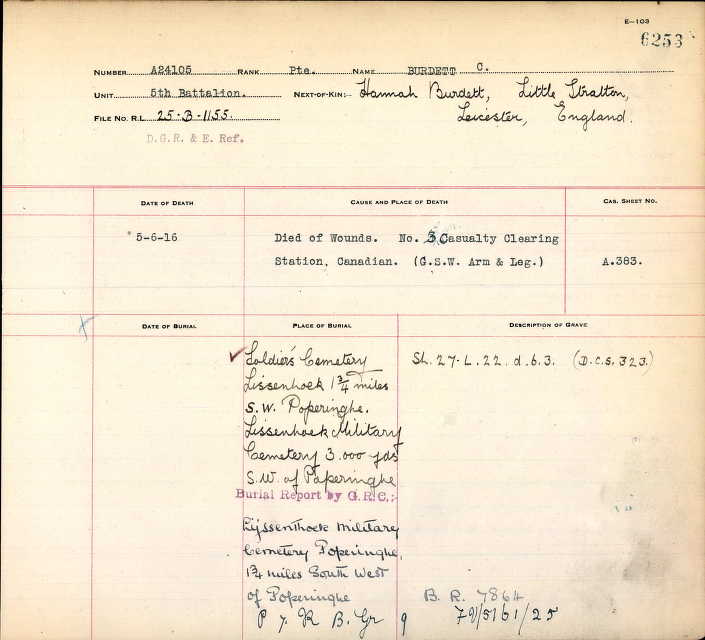 E-103
6253
NUMBER A24105 RANK Pte. NAME BURDETT C.
UNIT 5th Battalion. NEXT-OF-KIN:- Hannah Burdett, Little Stratton,
FILE No. R.L. 25-B-1155. Leicester, England.
D.G.R. & E. Ref.
DATE OF DEATH CAUSE AND PLACE OF DEATH CAS. SHEET NO.
5-6-16 Died of Wounds. No. 3 Casualty Clearing
Station, Canadian. (G.S.W. Arm & Leg.) A.383.
DATE OF BURIAL PLACE OF BURIAL DESCRIPTION OF GRAVE
Soldier's Cemetery Sh. 27. L. 22. d. 6.3. (D.C.S. 323.)
Lissenhoek 1 3/4 miles
S.W. Poperinghe.
Lissenhoek Military
Cemetery 3.000 yds
S.W. of Poperinghe
Burial Report by G.R.C.:-
Lijssenthoek Military
Cemetery Poperinghe,
1 3/4 miles South West
of Poperinghe B. R. 7864
P 7. R B. Gr 9